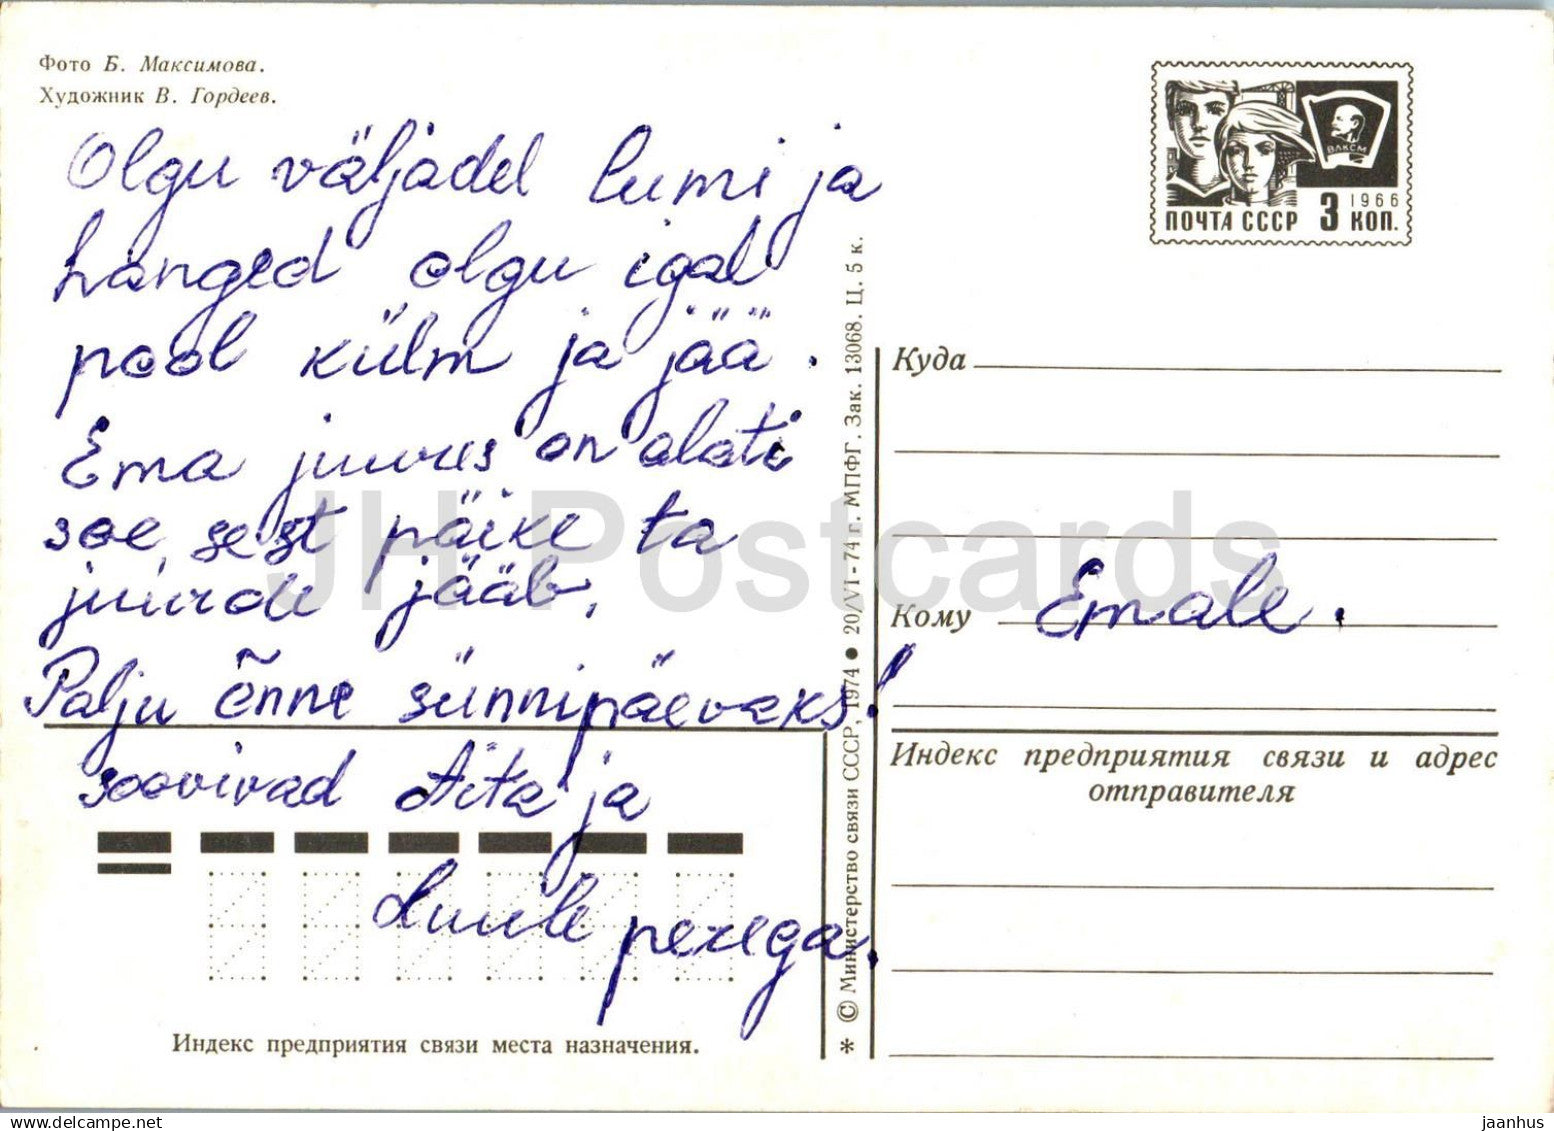 Фото Б. Максимова.
Художник В. Гордеев.
Olgu väljadel lumi ja
hanged olgu igal
pool külm ja jää.
Ema juures on alati
soe, sest päike ta
juurde jääb.
Palju õnne sünnipäevaks!
soovivad Aita ja
Luule perega.
Индекс предприятия связи места назначения.
* © Министерство связи СССР, 1974 ● 20/VI-74 г. МПФГ. Зак. 13068. Ц. 5 к.
ВЛКСМ
1966
ПОЧТА СССР 3 КОП.
Куда
Кому Emale.
Индекс предприятия связи и адрес
отправителя
JH Postcards
www.delcampe.net
jaanhus